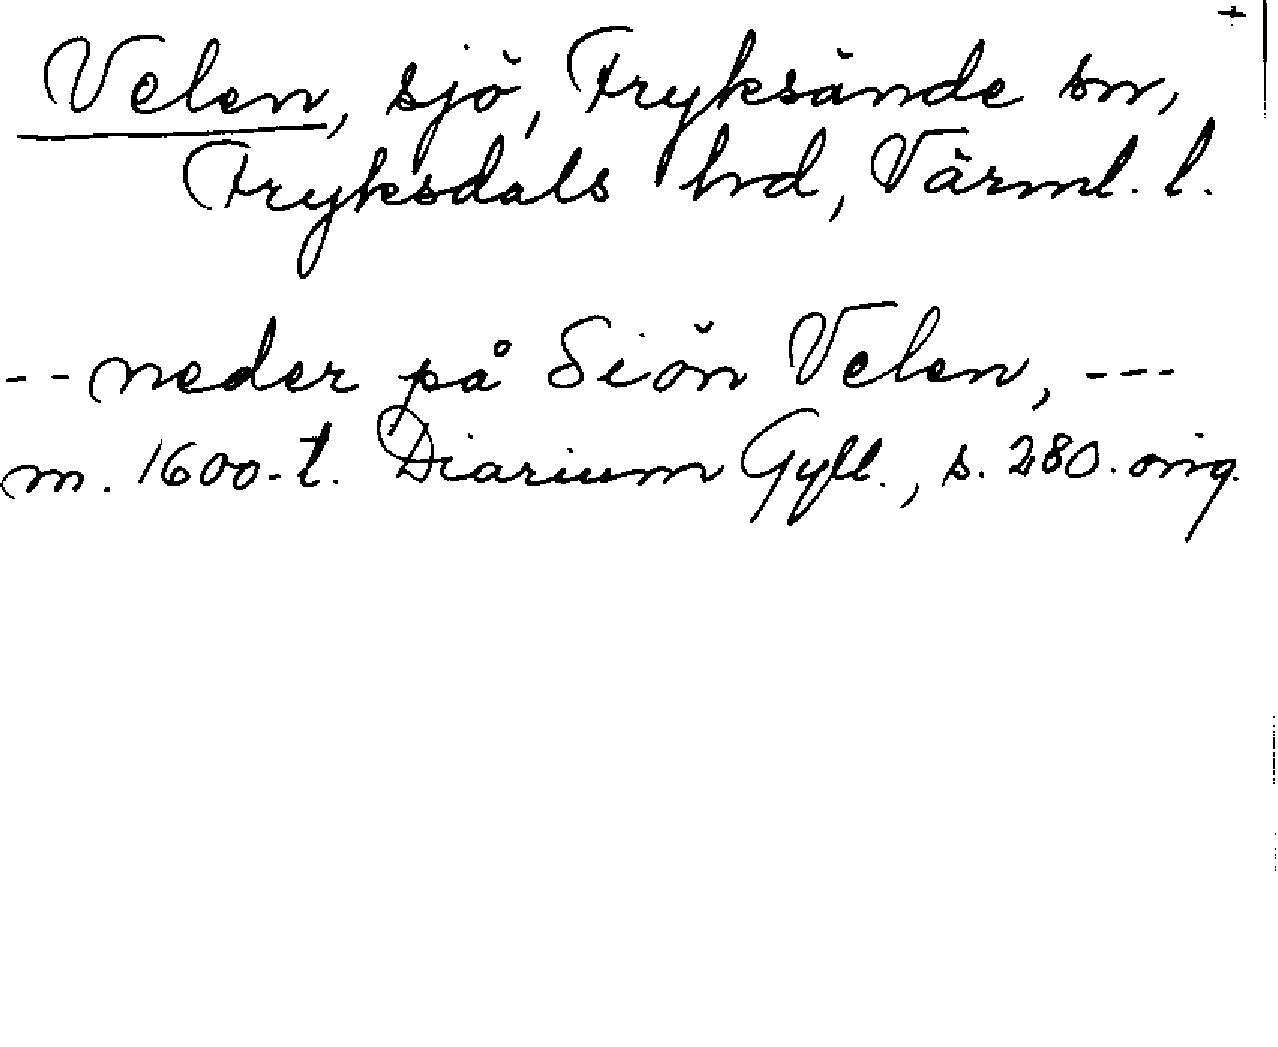 +
Velen, sjö, Fryksände sn,
Fryksdals hrd, Värml. l.
-- neder på Siön Velen, ---
m. 1600-t. Diarium Gyll., s. 280. orig.